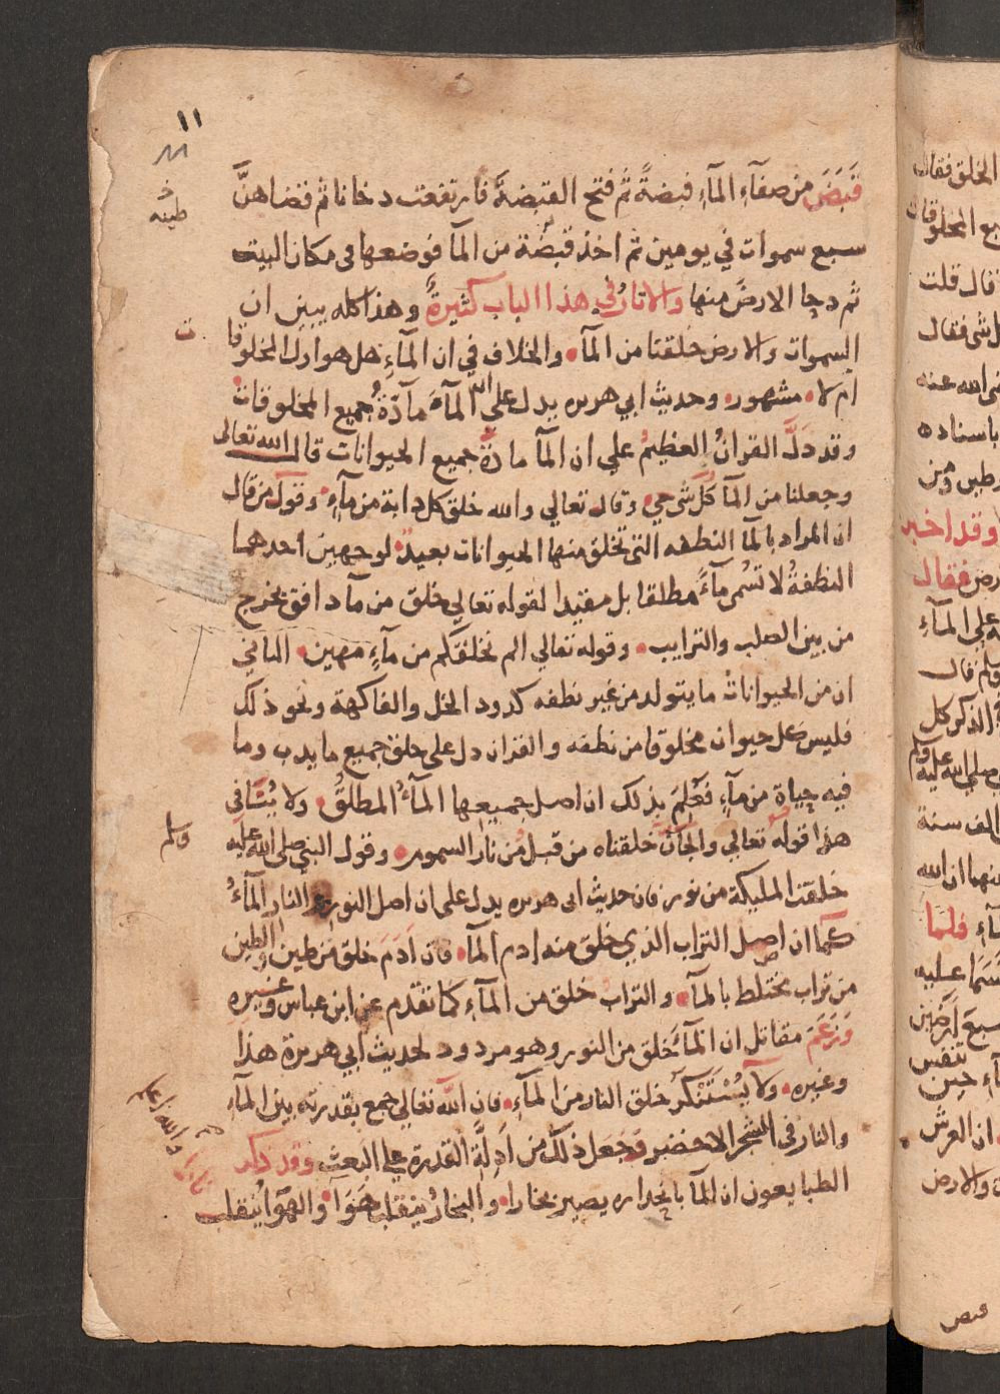 ١١
طينه
قَبَضَ من صفآءِ المآءِ قبضةً ثم فتح القبضةَ فارتفعت دخانا ثم قضاهنَّ
سبع سموات في يومين ثم اخذ قبضة من المآ فوضعها في مكان البيت
ثم دحا الارضَ منها والاثارُ في هذا الباب كثيرةٌ وهذا كله يبين ان
السموات والارض خلقتا من المآ والخلاف في ان المآءِ هل هو اول المخلوقا
ت
ام لا مشهور وحديث ابي هريره يدل على ان المآءَ مآدّةُ جميع المخلوقات
وقد دَلَّ القرانُ العظيمُ علي ان المآ مادةُ جميع الحيوانات قال الله تعالى
وجعلنا من المآ كلَّ شي حي وقال تعالي والله خلق كل دابة من مآءٍ وقول من قال
ان المراد بالمآ النطفه التي تخلق منها الحيوانات بعيدٌ لوجهين احدهما
النطفةُ لا تسُمى مآءً مطلقا بل مقيدا لقوله تعالي خلق من مآ دافق يخرج
من بين الصلب والترايب وقوله تعالي الم نخلقكم من مآءٍ مهين الثاني
ان من الحيوانات ما يتولد من غير نطفه كدود الخل والفاكهة ونحو ذلك
فليس كل حيوان مخلوقا من نطفه والقران دل على خلق جميع ما يدب وما
فيه حياة من مآءٍ فعُلِمَ بذلك ان اصل جميعها المآءُ المطلقُ ولا يُنَافي
هذا قوله تعالي والجانَّ خلقناه من قبل من نار السموم وقول النبي صلى الله عليه
وسلم
خلقت المليكة من نور فان حديث ابي هريره يدل على ان اصل النور والنار المآءُ
كما ان اصل التراب الذي خلق منه ادم المآ فان آدَمَ خلق من طين والطين
من تراب مختلط بالمآ والتراب خلق من المآءِ كما تقدم عن ابن عباس وغيرِهِ
وَزَعَمَ مقاتل ان المآءَ خلق من النور وهو مردود لحديث ابي هريرة هذا
وغيره ولا يُسْتَنْكَرُ خلق النار من المآءِ فان الله تعالي جمع بقدرته بين المآءِ
والنار في الشجر الاخضر وجعل ذلك من اَدِلَّةِ القدرة علي البعث وقد ذكر
والله اعلم
الطبايعون ان المآ بانحداره يصير بخارا والبخارُ ينقلب هَوَآءً والهوَاءُ ينقلب